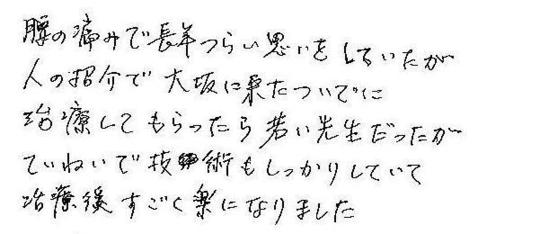 腰の痛みで長年つらい思いをしていたが
人の紹介で大坂に来たついでに
治療してもらったら若い先生だったが
ていねいで技術もしっかりしていて
治療後すごく楽になりました